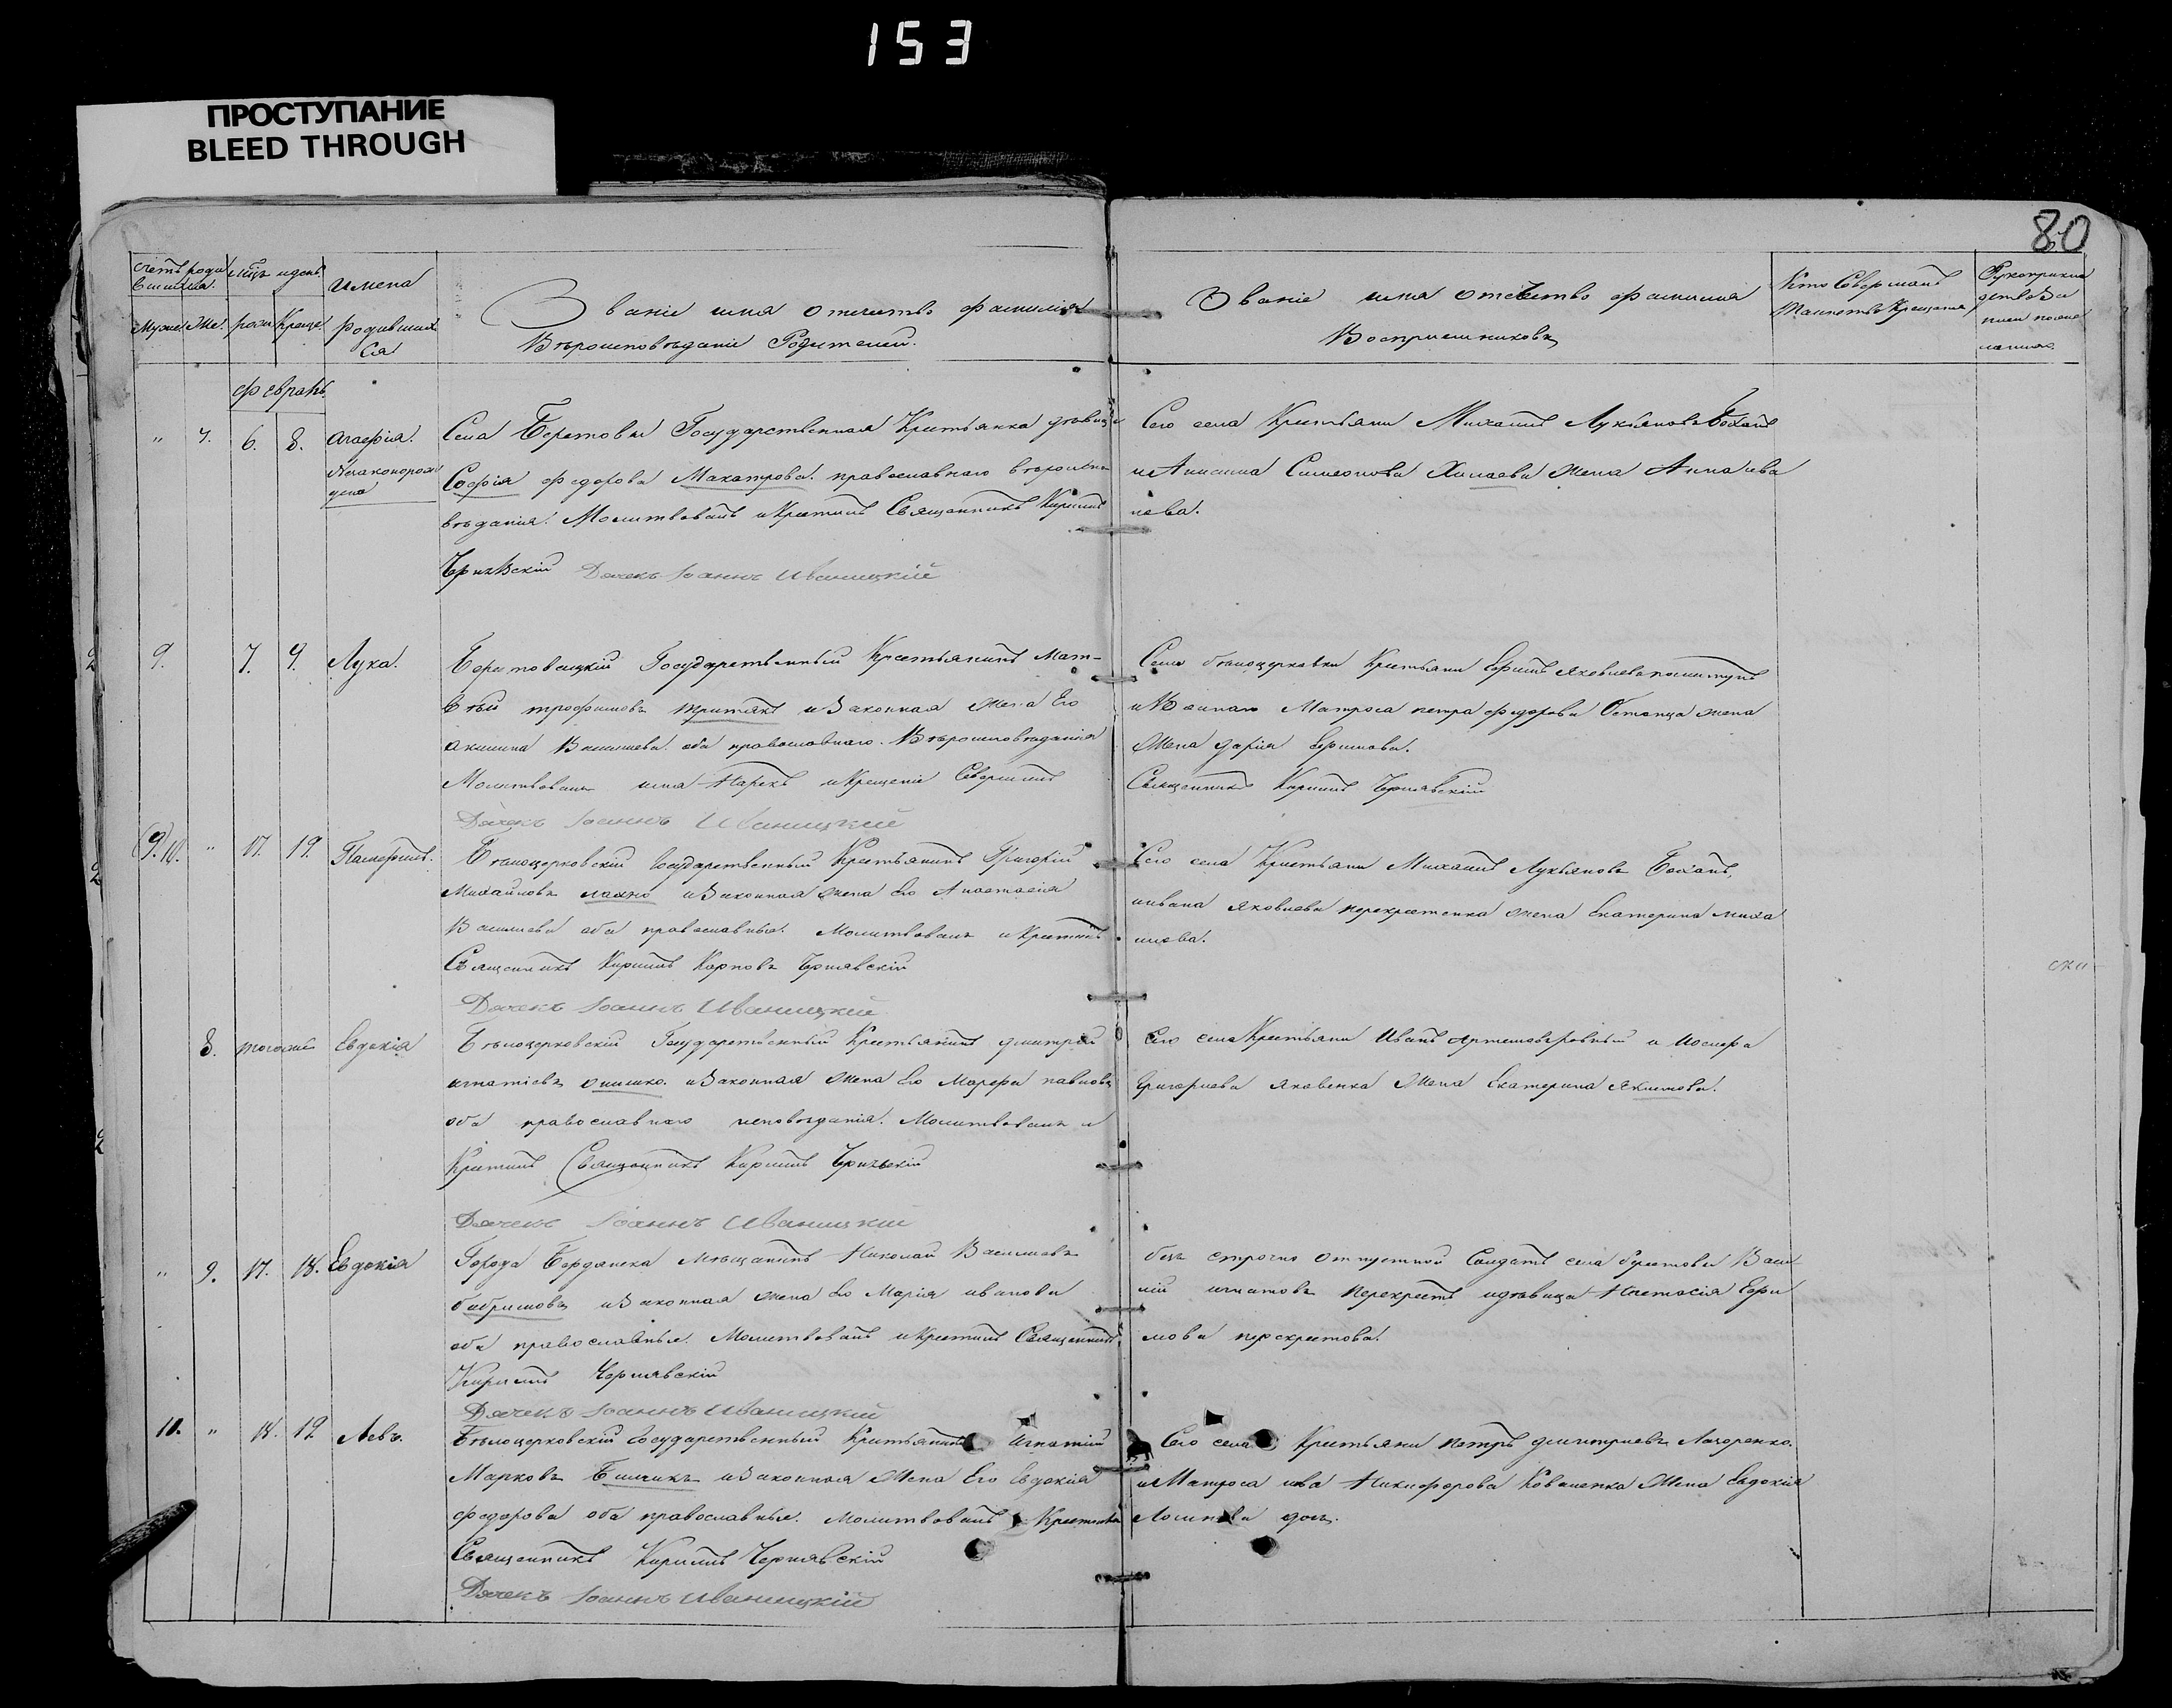 153
ПРОСТУПАНИЕ
BLEED THROUGH
80
Счетъ роди мцъ и день Имена
вшихся.
Муже. Же. рож. Креще. родивших
ся
Званіе имя отечество фамилія
Вѣроисповѣданіе Родителей.
Званіе имя отечество фамилия
Восприемниковъ
Кто Совершалъ
Таинство Крещения
Рукоприкла
дство
Февраль
" 7. 6. 8. Агафія.
Незаконорож
дена
Села Берестовки Государственная Крестьянка дѣвица
София федорова Махатрова. православнаго вѣроиспо
вѣдания. Молитвовалъ и Крестилъ Священникъ Кирилъ
Чернявскій Дячекъ Іоаннъ Иваницкій
Сего села Крестьяни Михаилъ Лукьяновъ Боханъ
Симеонова жена Анна
нова.
9. 7. 9. Лука.
Государственный Крестьянинъ Мат-
вѣй трофимовъ притякъ и Законная жена Его
акилина Василиева. оба православнаго. Вѣроисповѣдания
Молитвовалъ имя Нарекъ и Крещение Совершилъ
Дячекъ Іоаннъ Иваницкій
Села бѣлоцерковки Крестьяни Ефимъ Яковлевъ
Матроса петра федорова Остапца жена
жена дария Ефимова.
Священникъ Кирилъ Чернявский
(9. 10. " 17. 19. Памфилъ.
Бѣлоцерковский Государственный Крестьянинъ Григорій
Михайловъ лахно и Законная жена Его Анастасія
Василиева оба православные. Молитвовалъ и Крестилъ
Священникъ Кирилъ Карповъ Чернявский
Дячекъ Іоаннъ Иваницкій
Сего села Крестьяни Михаилъ Лукьяновъ Боханъ,
и ивана Яковлева перехрестенка жена Екатерина миха
илова.
8. тогоже Евдокия
Бѣлоцерковский Государственный Крестьянинъ дмитрий
игнатіевъ онишко. и Законная жена Его Марфа павлова
оба православнаго исповѣдания. Молитвовалъ и
Крестилъ Священникъ Кирилъ Чернявский
Дячекъ Іоаннъ Иваницкій
Сего села Крестьяни Иванъ и Иосифа
Григориева Яковенка жена Екатерина Якимова.
" 9. 17. 18. Евдокия
Города Бердянска Мѣщанинъ Николай Василиевъ
и Законная жена Его Мария иванова
оба православные. Молитвовалъ и Крестилъ Священникъ
Кирилъ Чернявский
Дячекъ Іоаннъ Иваницкій
безъ строчно отпустной Солдатъ села берестовки Васи
лий игнатовъ Перехрестъ и дѣвица Настасія Ефи
мова перехрестова.
10. " 18. 19. Левъ.
Бѣлоцерковский Государственный Крестьянинъ Игнатий
Марковъ и Законная жена Его Евдокия
федорова оба православные. молитвовалъ и Крестилъ
Священникъ Кирилъ Чернявский
Дячекъ Іоаннъ Иваницкій
Сего села Крестьяни петръ дмитриевъ Лазоренко.
и Матроса ива Никифорова Коваленка жена Евдокия
дочь.